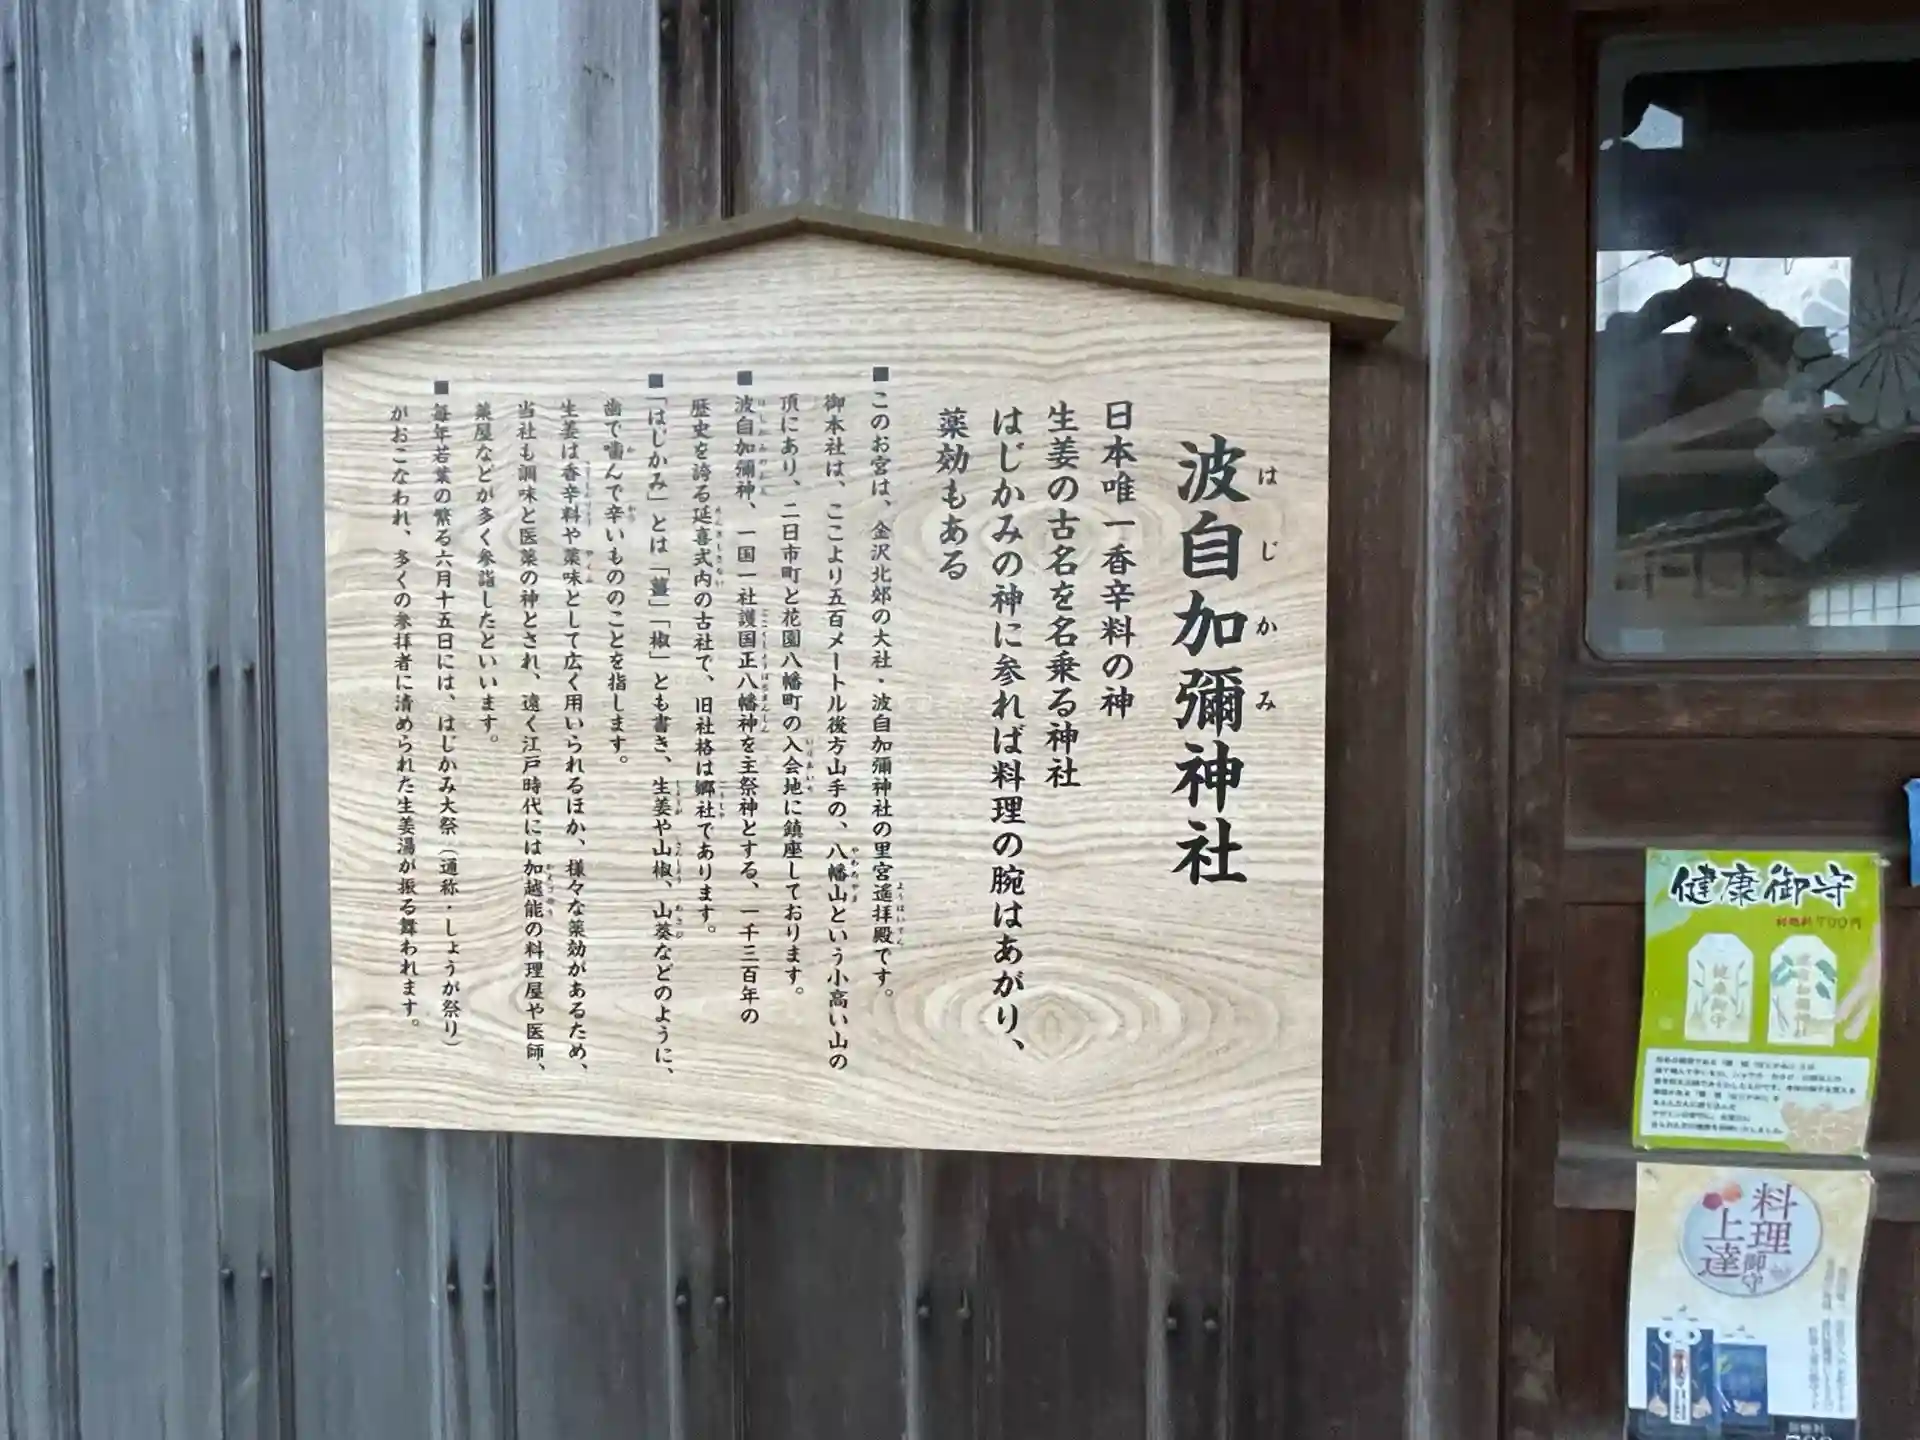 波自加彌神社
はじかみ
日本唯一香辛料の神
生姜の古名を名乗る神社
はじかみの神に参れば料理の腕はあがり、
薬効もある
■このお宮は、金沢北郊の大社・波自加彌神社の里宮遙拝殿です。
御本社は、ここより五百メートル後方山手の、八幡山という小高い山の
頂にあり、二日市町と花園八幡町の入会地に鎮座しております。
■波自加彌神、一国一社護国正八幡神を主祭神とする、一千三百年の
歴史を誇る延喜式内の古社で、旧社格は郷社であります。
■「はじかみ」とは「薑」「椒」とも書き、生姜や山椒、山葵などのように、
歯で噛んで辛いもののことを指します。
生姜は香辛料や薬味として広く用いられるほか、様々な薬効があるため、
当社も調味と医薬の神とされ、遠く江戸時代には加越能の料理屋や医師、
薬屋などが多く参詣したといいます。
■毎年若葉の繁る六月十五日には、はじかみ大祭（通称・しょうが祭り）
がおこなわれ、多くの参拝者に清められた生姜湯が振る舞われます。
健康御守
初穂料700円
健康御守
料理
上達
御守